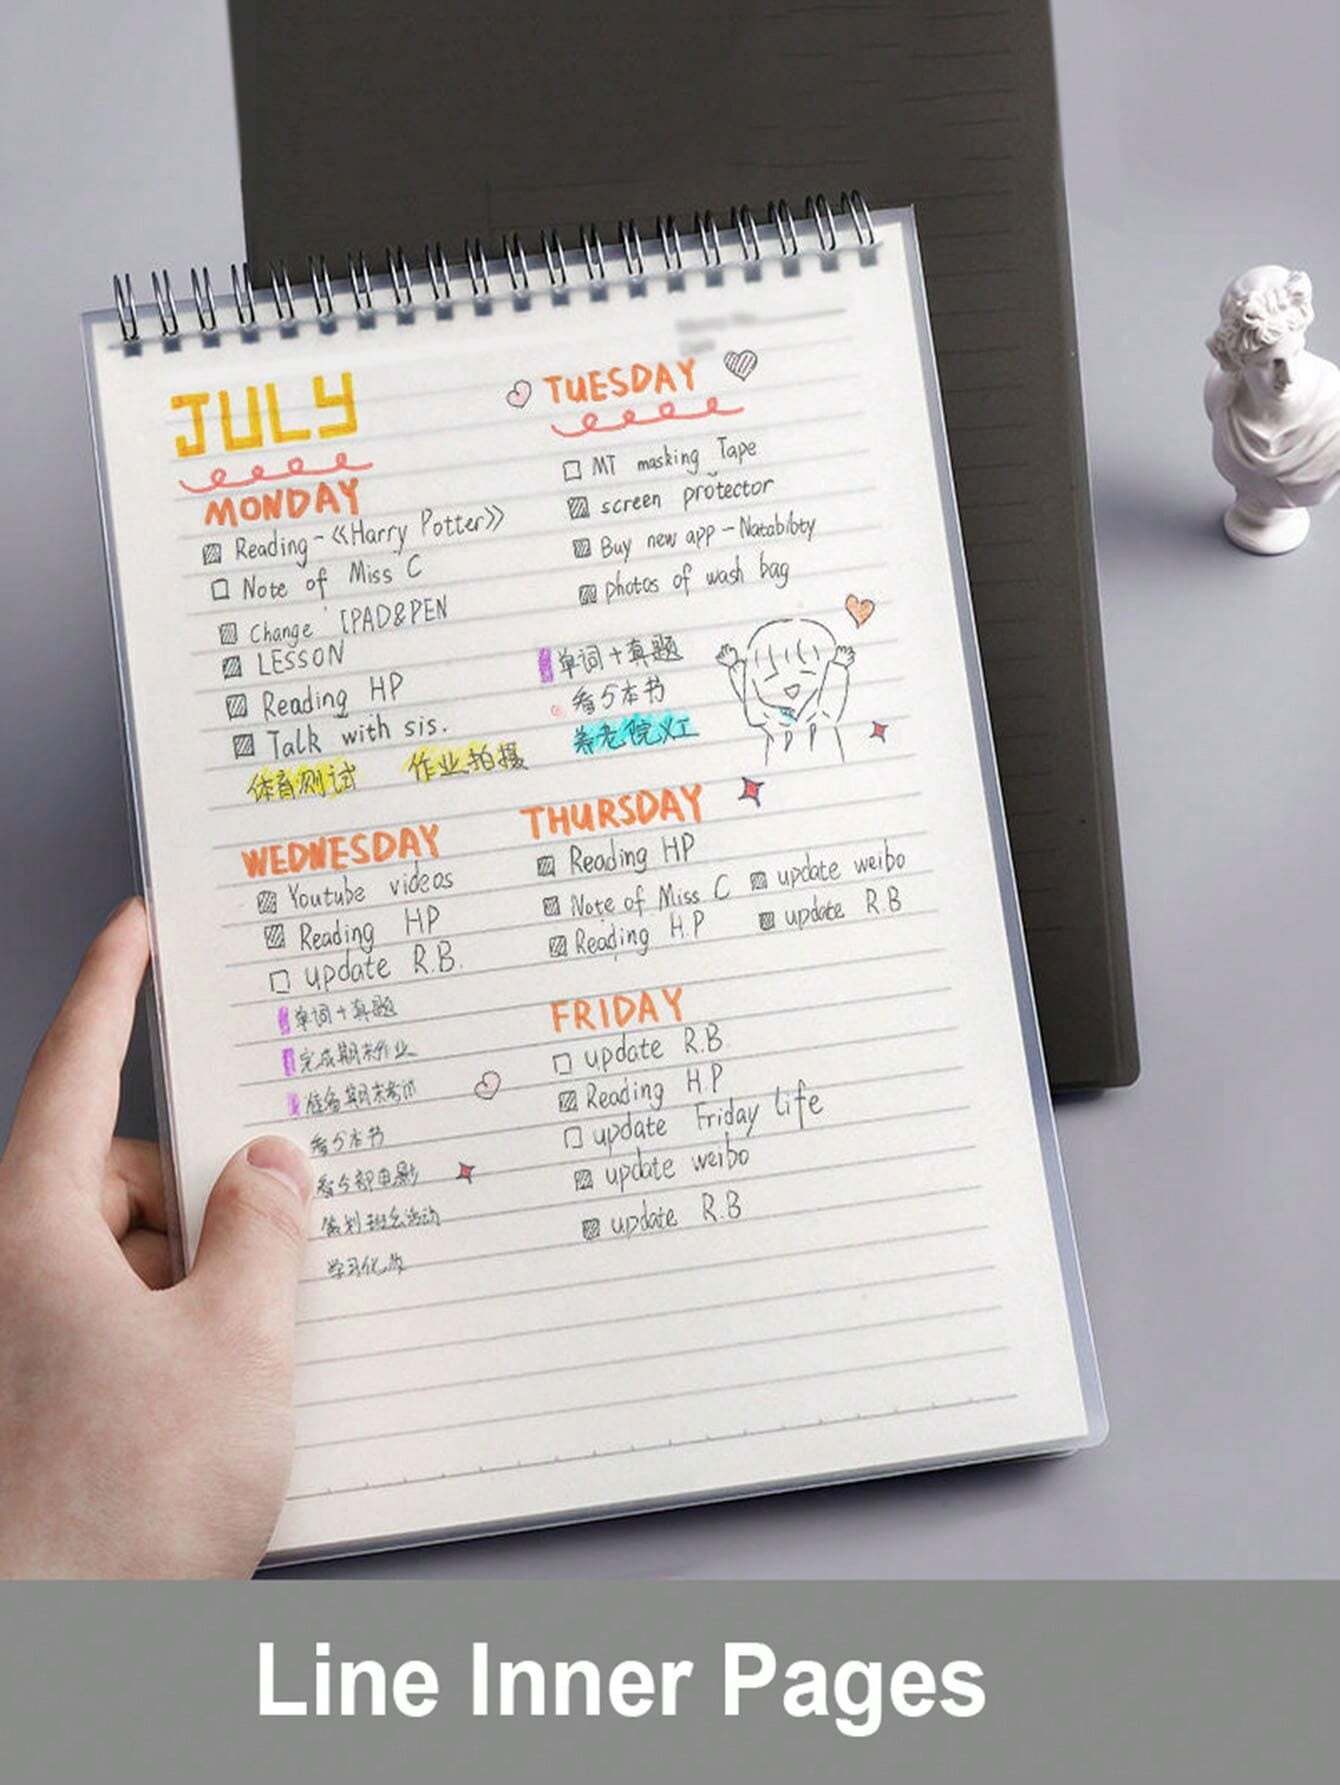 JULY
MONDAY
Reading-《Harry Potter》
Note of Miss C
Change IPAD&PEN
LESSON
Reading HP
Talk with sis.
体育测试 作业拍摄
TUESDAY
MT masking Tape
screen protector
Buy new app - Natabibty
photos of wash bag
单词+真题
看5本书
养老院义工
WEDNESDAY
Youtube videos
Reading HP
update R.B.
单词+真题
完成期末作业
准备期末考试
看5本书
看5部电影
策划班会活动
学习化妆
THURSDAY
Reading HP
Note of Miss C
Reading H.P
update weibo
update R.B
FRIDAY
update R.B
Reading HP
update Friday life
update weibo
update R.B
Line Inner Pages